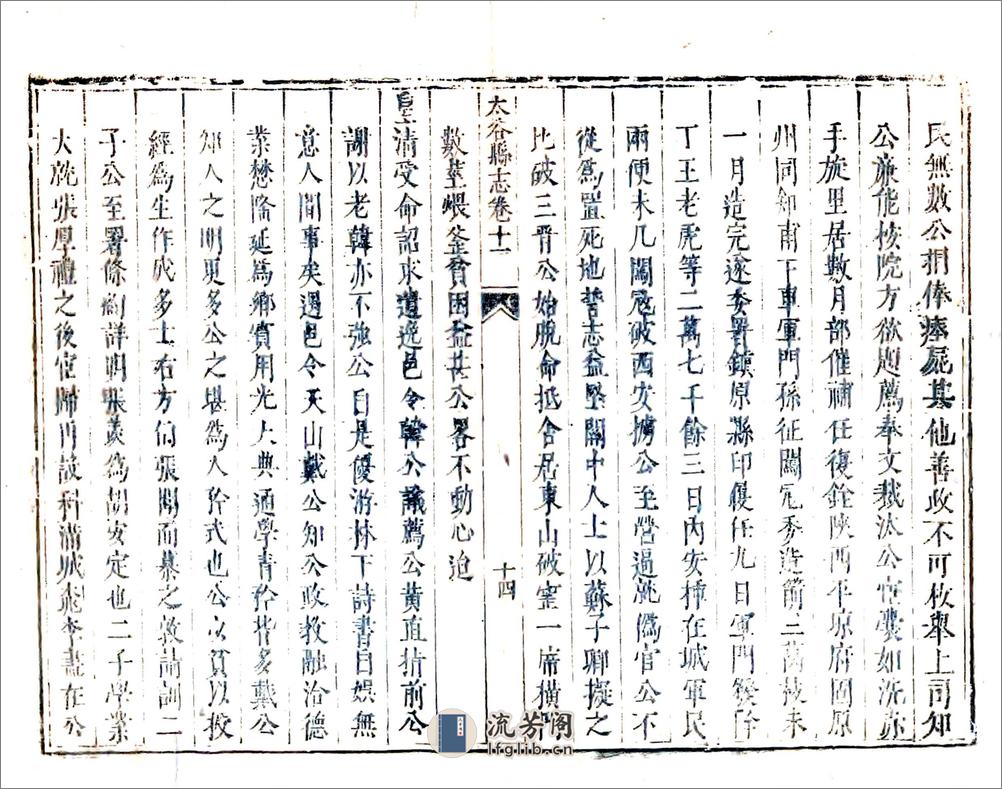 民無數公捐俸瘞屍其他善政不可枚舉上司知
公廉能按院方欲題薦奉文裁汰公宦囊如洗赤
手旋里居數月部催補任復銓陝西平凉府固原
州同知甫下車軍門孫征闖寇委造箭三萬枝未
一月造完遂委署鎮原縣印僅任九日軍門發餘
丁王老虎等二萬七千餘三日內安揷在城軍民
兩便未几闖冦破西安擄公至營逼就僞官公不
從爲置死地誓志益堅關中人士以蘇子卿擬之
比破三晋公始脫命抵舍居東山破窰一席橫
數莖煨釜貧困益甚公畧不動心迨
太谷縣志卷十一
十四
皇清受命詔求遺逸邑令韓公議薦公黄直指前公
謝以老韓亦不强公自是優游林下詩書自娛無
意人間事矣遇邑令天山戴公知公政教融洽德
業懋隆延爲鄉賓用光大典通學青衿皆多戴公
知人之明更多公之堪爲人矜式也公以貧以教
經爲生作成多士右方伯張聞而慕之敦請訓二
子公至署條約詳明張羨爲胡安定也二子學業
大就張厚禮之後宦歸再設科滿城桃李盡在公